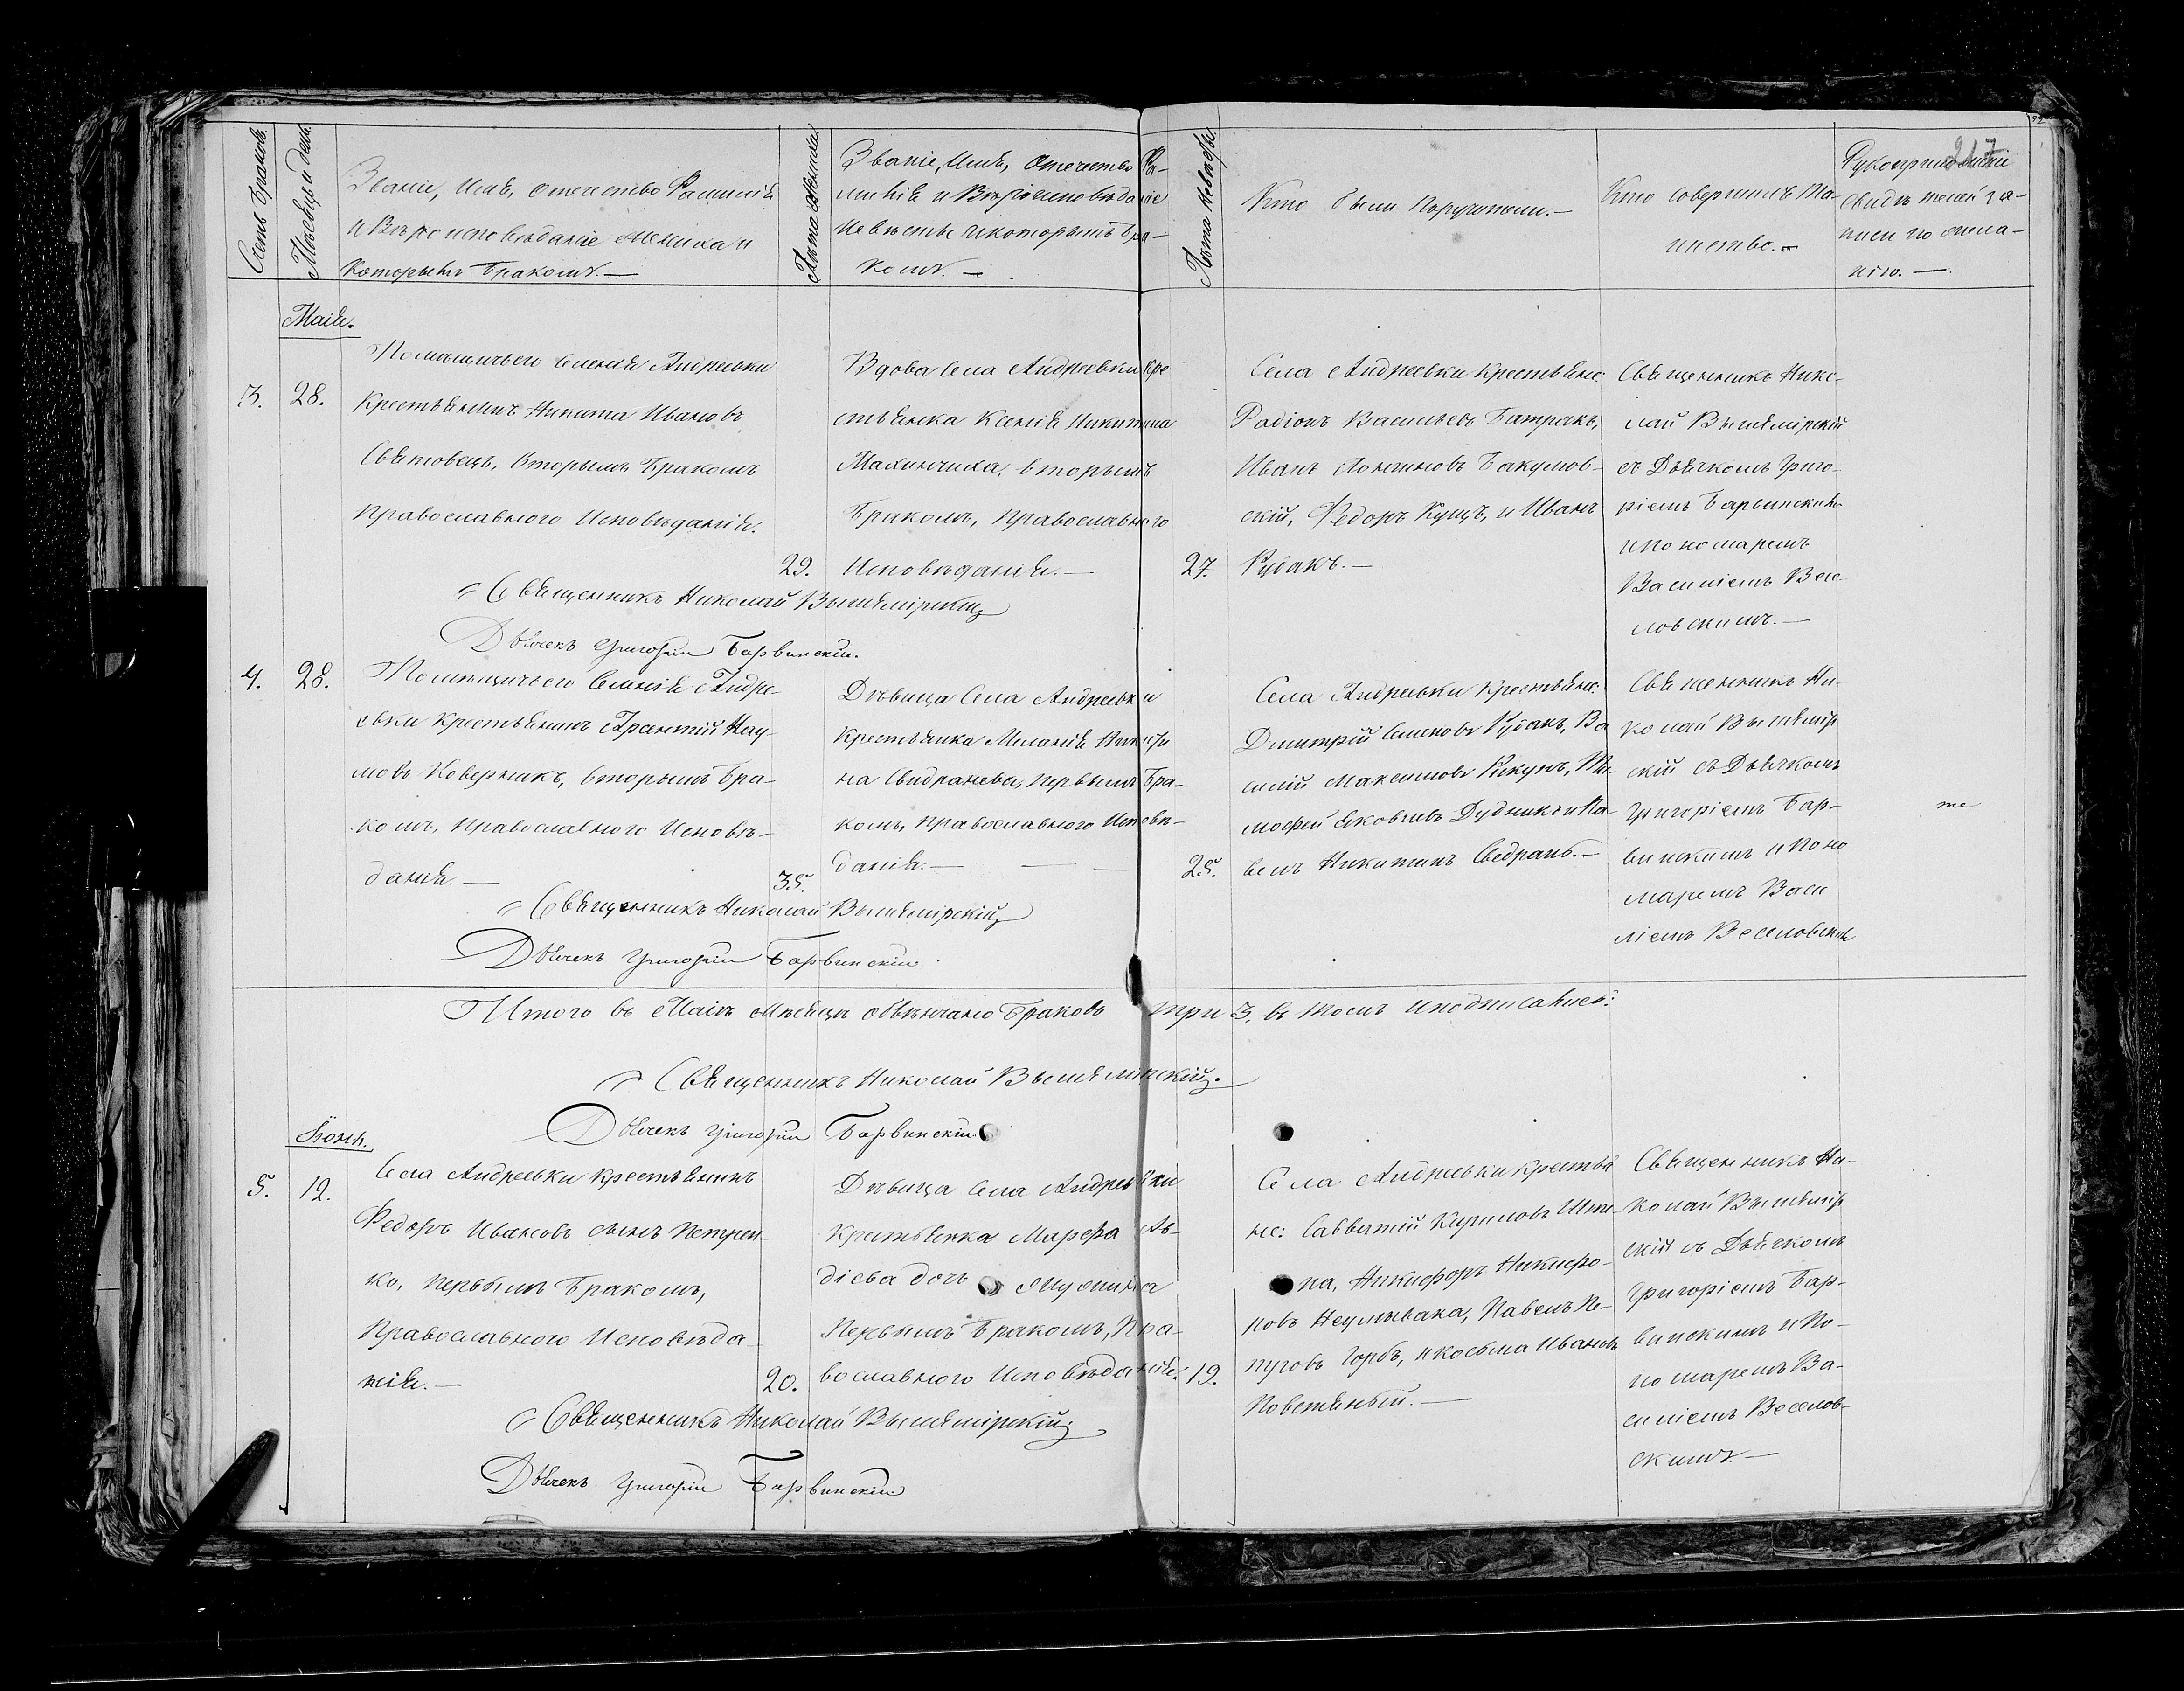 217
Счетъ браковъ.
Мѣсяцъ и день.
Званіе, Имя, отечество Фамилія
и Вѣроисповѣданіе Жениха и
которымъ Бракомъ.—
Лѣта Жениха.
Званіе, Имя, Отечество Фа-
милія и Вѣроисповѣданіе
Невѣсты и которымъ Бра-
комъ.—
Лѣта Невѣсты.
Кто были Поручители.—
Кто совершилъ Та-
инство.—
Рукоприкладство
свидѣтелей за-
писи по жела-
нію.—
Маія.
3.
28.
Помѣщичьего Селенія Андреевки
Крестьянинъ Никита Ивановъ
Святовецъ, вторымъ Бракомъ
Православного Исповѣданія.
29.
Вдова Села Андреевки кре
стьянка Ксенія Никитина
вторымъ
Бракомъ, Православного
Исповѣданія.—
27.
Села Андреевки Крестьяне:
Радіонъ Васильевъ Батракъ,
Иванъ Лонгиновъ Бакумов-
скій, Федоръ Куцъ, и Иванъ
Рубакъ.—
Священникъ Нико-
лай Вышемірскій
съ Дьячкомъ Григо-
ріемъ Барвинскимъ
и Пономаремъ
Василіемъ Весе-
ловскимъ.—
Священникъ Николай Вышемірскій
Дьячекъ Григорій Барвинскій.
4.
28.
Помѣщичьего Селенія Андре-
евки крестьянинъ Нау-
мовъ Коверникъ, вторымъ Бра-
комъ, Православного Исповѣ-
данія.—
35.
Дѣвица Села Андреевки
Крестьянка Меланія Никити
на первымъ Бра-
комъ, Православного Исповѣ-
данія.—
25.
Села Андреевки Крестьяне:
Дмитрій Семеновъ Рубакъ, Ва
силій Максимовъ Рикунъ, Ти-
мофей Яковлевъ Дудникъ и Па-
велъ Никитинъ Свидранъ.—
Священникъ Ни-
колай Вышемір
скій съ Дьячкомъ
Григоріемъ Бар-
винскимъ и Поно
маремъ Васи
ліемъ Веселовским
те
Священникъ Николай Вышемірскій
Дьячекъ Григорій Барвинскій
Итого въ Маіѣ мѣсяцѣ обвѣнчано Браковъ три 3, въ томъ и подписались:
Священникъ Николай Вышемірскій.
Дьячекъ Григорій Барвинскій
Іюня.
5.
12.
Села Андреевки крестьянинъ
Федоръ Ивановъ сынъ Петрен-
ко, первымъ Бракомъ,
Православного Исповѣда-
нія.—
20.
Дѣвица Села Андреевки
Крестьянка Марфа Ав-
діева дочь
Первымъ Бракомъ, Пра-
вославного Исповѣданія.
19.
Села Андреевки крестья
не: Савватій Кириловъ Шпе-
па, Никифоръ Никифо-
ровъ Неумывака, Павелъ
Горбъ, и Косьма Ивановъ
Повстяный.—
Священникъ Ни-
колай Вышемір
скій съ Дьячкомъ
Григоріемъ Бар-
винскимъ и По-
номаремъ Ва-
силіемъ Веселов-
скимъ.—
Священникъ Николай Вышемірскій
Дьячекъ Григорій Барвинскій